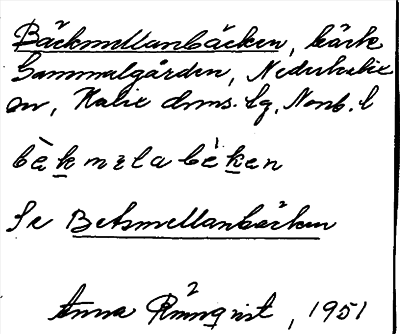 Bäckmellanbäcken, bäck
Gammalgården, Nederkalix
sn, Kalix dms. lg, Norrb. l
bè̱kmɛlabè̱ken
Se Betsmellanbäcken
Anna Rönnqvist, 1951